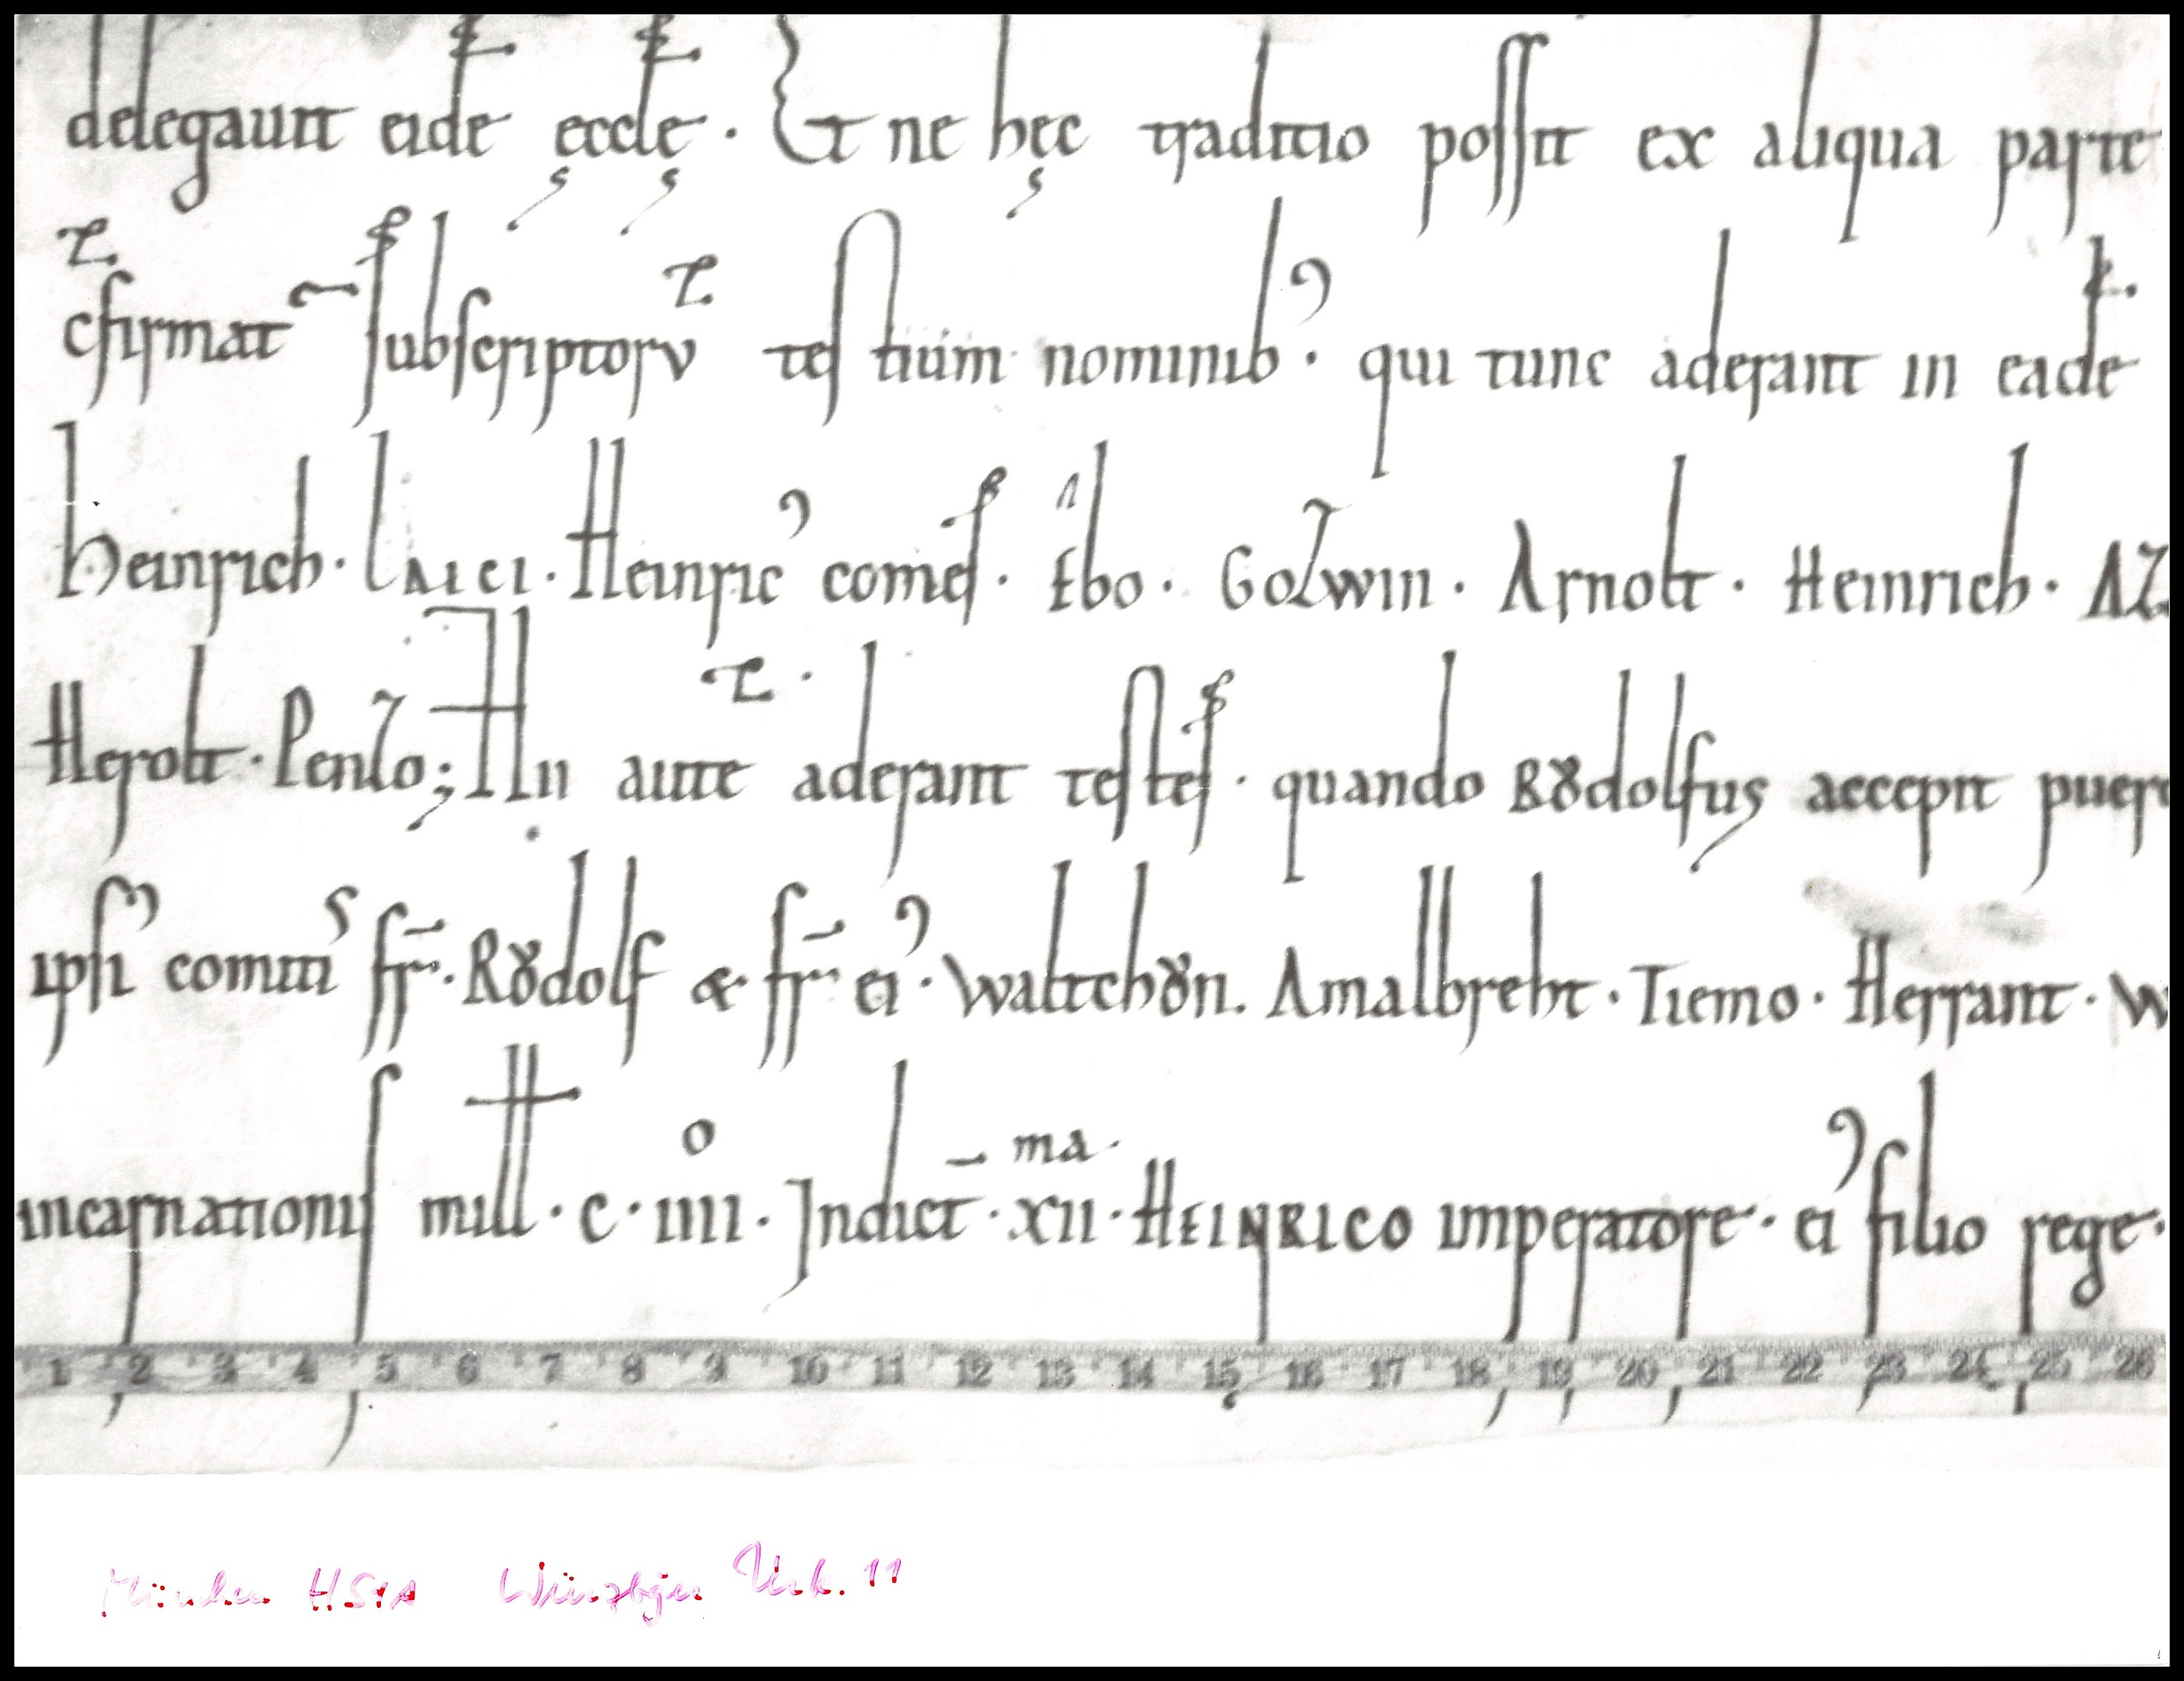 delegauit eidē ęcclę · Et ne hęc traditio possit ex aliqua parte
cfirmat̄ subscriptorū testium nominib᾿ · qui tunc aderant in eadē
heinrich · Laici · Heinric᾿ comes · Ebo · Gozwin · Arnolt · Heinrich · AZ
Herolt · Penzo ; Hii aūte aderant testes · quando Rȣdolfus accepit puero
ipsi᾿ comiti᾿ fr̄r · Rȣdolf & fr̄r ei᾿ · Waltchȣn . Amalbreht · Tiemo · Herrant · W
incarnationis mill · c · iiii°· Indict̄ · xii^ma · HEINRICO imperatore · ei᾿ filio rege ·
1 2 3 4 5 6 7 8 9 10 11 12 13 14 15 16 17 18 19 20 21 22 23 24 25 26
München HStA Würzburger Urk. 11